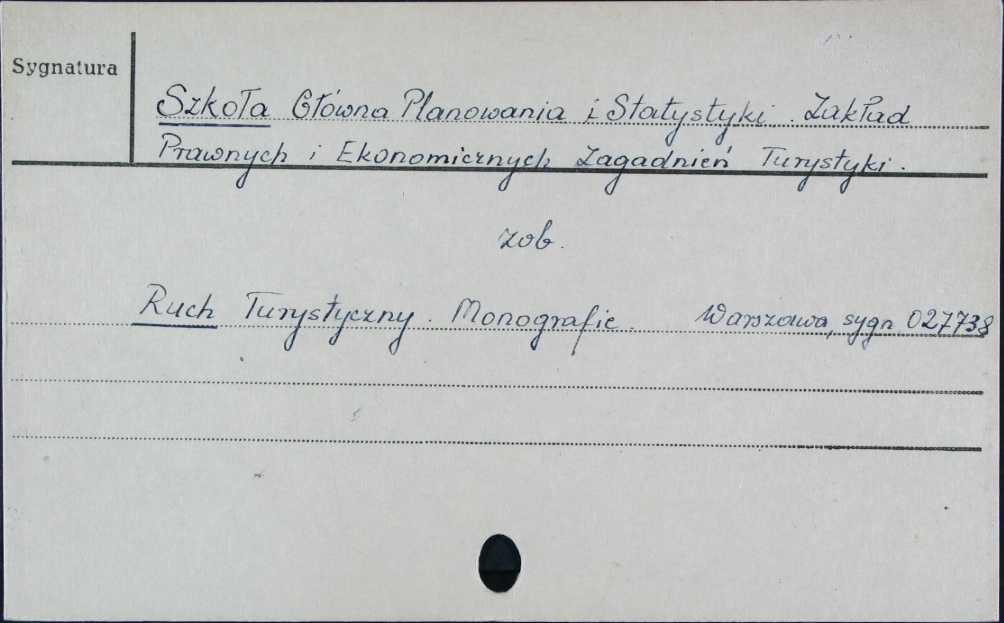 Sygnatura
Szkoła Główna Planowania i Statystyki. Zakład
Prawnych i Ekonomicznych Zagadnień Turystyki.
zob.
Ruch Turystyczny. Monografie. Warszawa, sygn. 027738